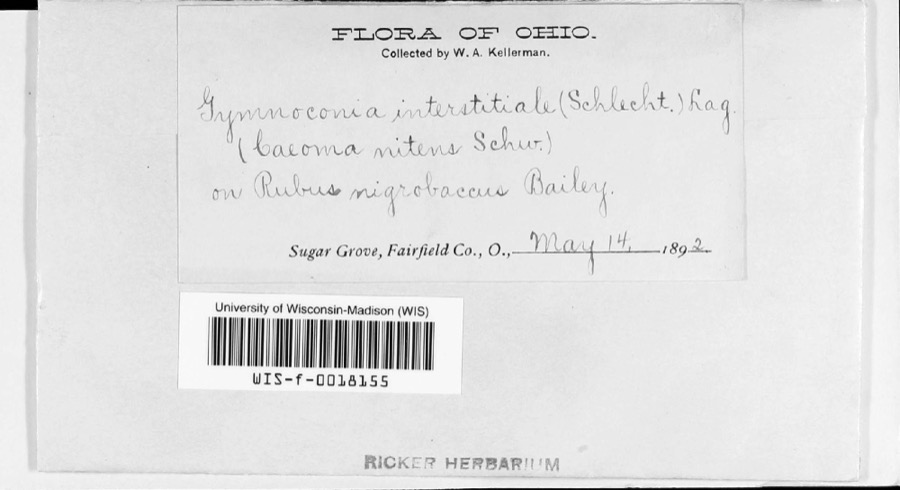 FLORA OF OHIO.
Collected by W. A. Kellerman.
Gymnoconia interstitiale (Schlecht.) Lag.
(Caeoma nitens Schw.)
on Rubus nigrobaccus Bailey.
Sugar Grove, Fairfield Co., O., May 14, 1892.
University of Wisconsin-Madison (WIS)
WIS-f-0018155
RICKER HERBARIUM